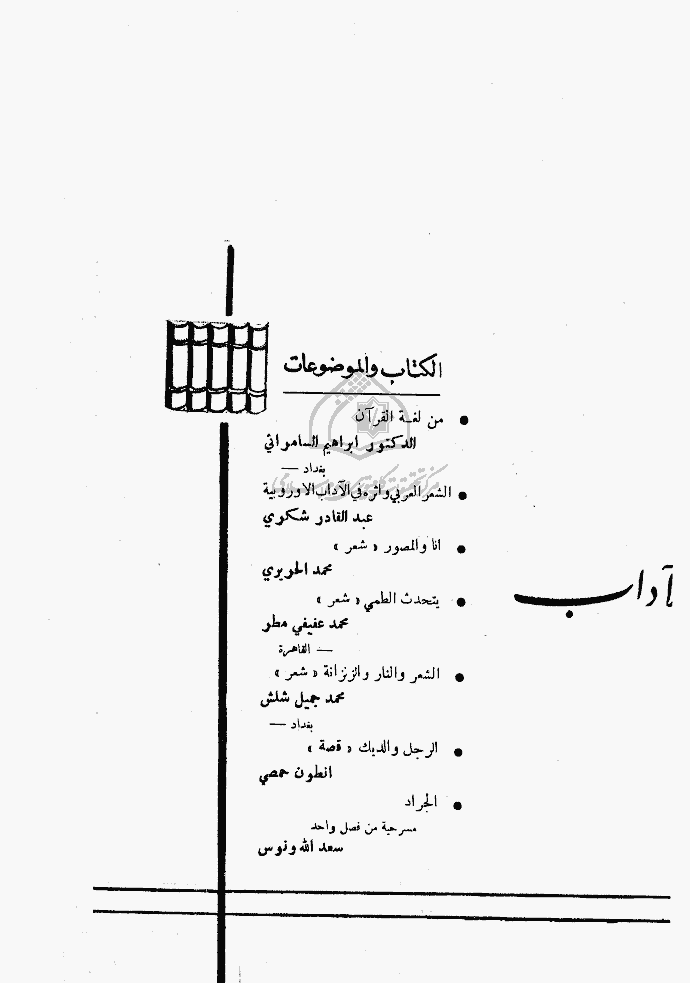 آداب
الكتاب والموضوعات
من لغة القرآن
الدكتور ابراهيم السامرائي
بغداد —
الشعر العربي واثره في الآداب الاوروبية
عبد القادر شكري
انا والمصور « شعر »
محمد الحريري
يتحدث الطمي « شعر »
محمد عفيفي مطر
— القاهرة
الشعر والنار والزنزانة « شعر »
محمد جميل شلش
بغداد —
الرجل والديك « قصة »
انطون حمصي
الجراد
مسرحية من فصل واحد
سعد الله ونوس